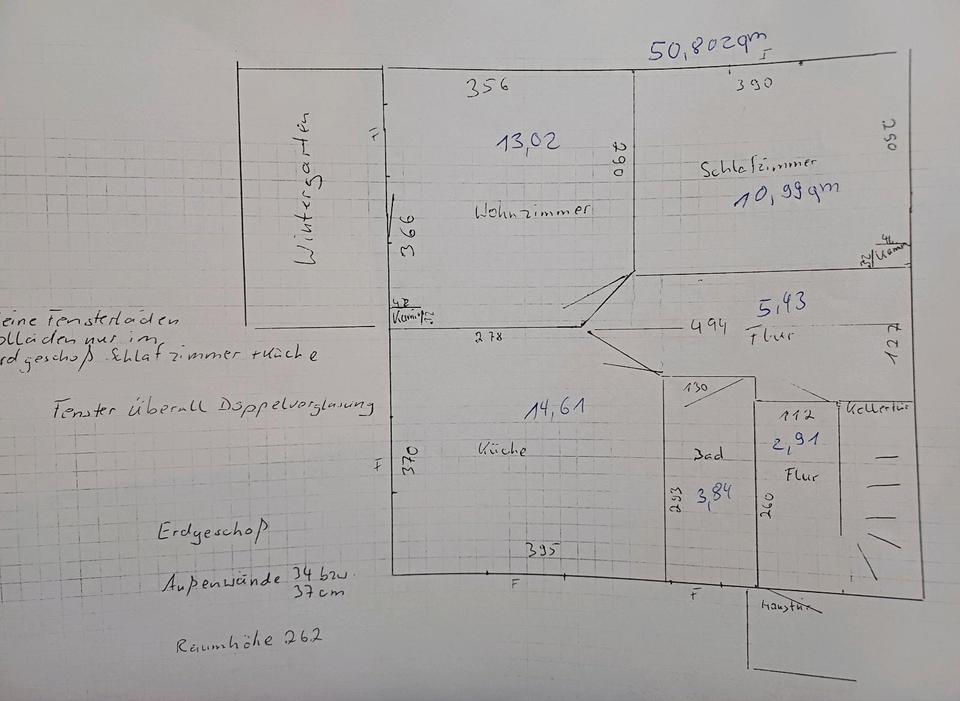 50,802qm
356
390
13,02
260
250
Schlafzimmer
10,99qm
Wintergarten
366
Wohnzimmer
42
Kamin
32
42
Kamin
32
5,43
494
Flur
127
278
eine Fensterläden
olläden nur im
rdgeschoß Schlafzimmer + Küche
Fenster Überall Doppelverglasung
130
112
Kellertür
14,61
2,91
Küche
Bad
Flur
370
3,84
293
260
395
F
F
F
F
Erdgeschoß
Außenwände 34 bzw.
37cm
Haustür
Raumhöhe 262